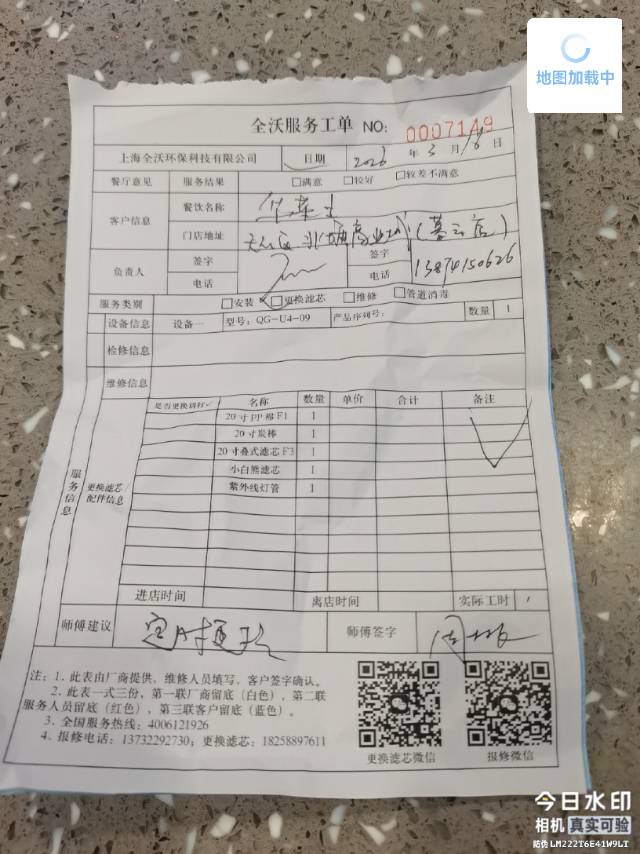 地图加载中
全沃服务工单 NO: 0007149
上海全沃环保科技有限公司 日期 2026 年 3 月 16 日
餐厅意见 服务结果 □满意 □较好 □较差不满意
客户信息 餐饮名称 华莱士
门店地址 天心区 北城商业城(暮云店)
负责人 签字 签字
电话 电话 13874150626
服务类别 □安装 □更换滤芯 □维修 □管道消毒
设备信息 设备一 型号: QG-U4-09 产品序列号: 数量 1
检修信息
维修信息
服务信息 更换滤芯/配件信息
是否更换请打✓ 名称 数量 单价 合计 备注
20寸PP棉F1 1
20寸炭棒 1
20寸叠式滤芯F3 1
小白熊滤芯 1
紫外线灯管 1
进店时间 离店时间 实际工时
师傅建议 定时更换 师傅签字
注: 1、此表由厂商提供, 维修人员填写, 客户签字确认。
2、此表一式三份, 第一联厂商留底(白色)、第二联
服务人员留底(红色)、第三联客户留底(蓝色)。
3、全国服务热线: 4006121926
4、报修电话: 13732292730; 更换滤芯: 18258897611
更换滤芯微信 报修微信
今日水印
相机 真实可验
防伪 LM222T6E41W9LT